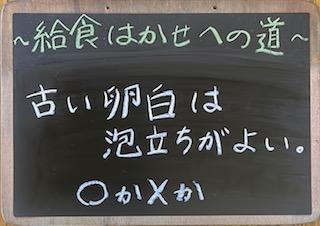 ~給食はかせへの道~
古い卵白は
泡立ちがよい。
○か×か